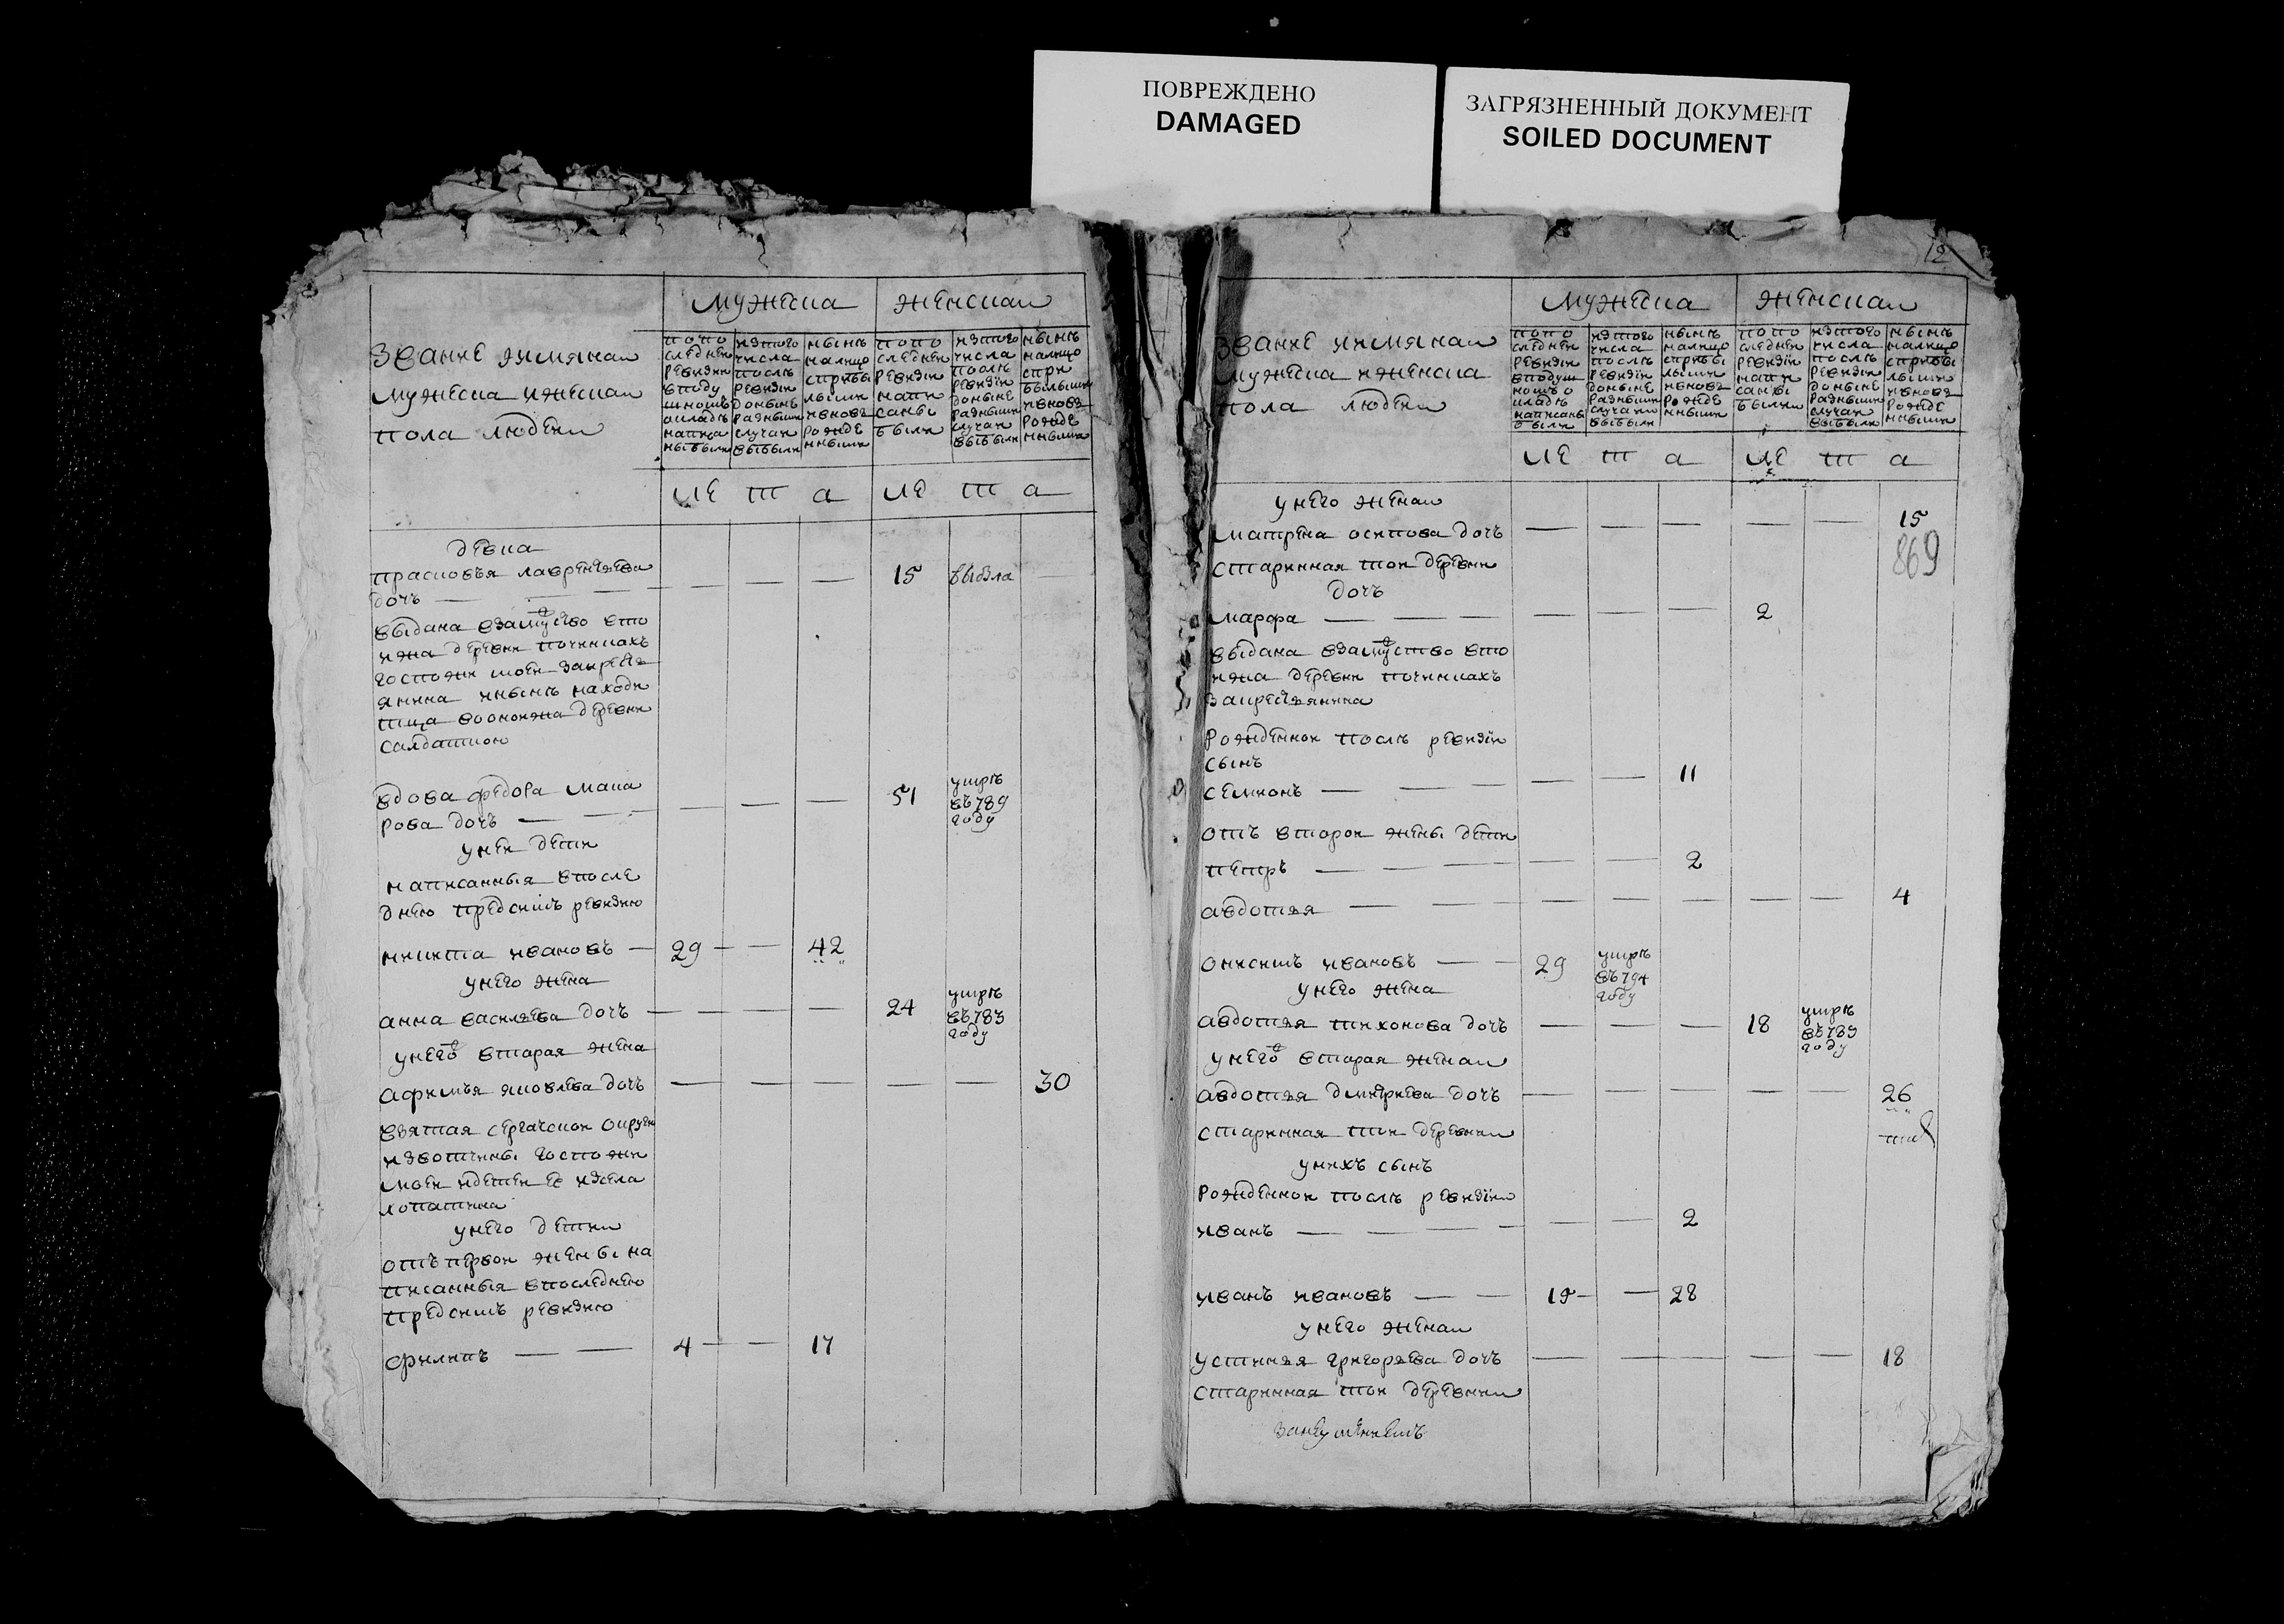 ПОВРЕЖДЕНО
DAMAGED
ЗАГРЯЗНЕННЫЙ ДОКУМЕНТ
SOILED DOCUMENT
мужеска
женскаи
звание яимянаи
мужеска иженскаи
пола людеи
попо
следнеи
ревизии
вподу
шномъ
окладѣ
написа
ныбыли
изтого
числа
послѣ
ревизіи
донынѣ
разнымі
случаи
выбыли
нынѣ
налицо
сприбы
лыми
ивновь
рожде
нными
попо
следнеи
ревизіи
напи
саны
были
изтого
числа
послѣ
ревизіи
донынѣ
разными
случаи
выбыли
нынѣ
налицо
спри
былыми
ивновь
рожде
нными
ле т а ле т а
девка
прасковья лаврентьева
дочь — — — — — — 15 выбыла
выдана взамужство вто
ижа деревни починкахъ
госпожи моеи закресть
янина инынѣ находи
тца вооноижа деревни
салдаткою
вдова федора мака
рова дочь — — — — — 51 умрѣ
въ789
году
унеи дети
написанныя впосле
днею предсимъ ревизию
никита ивановъ — 29 — — 42
унего жена
анна васильева дочь — — — — 24 умрѣ
въ783
году
унего вторая жена
афимья яковлева дочь — — — — — 30
взятая сергачскои округи
извотчины госпожи
моеи идетеи ее изсела
лопатина
унего детии
отъ первои жены на
писанныя впоследнею
предсимъ ревизию
филипъ — — 4 — — 17
12
мужеска
женскаи
звание яимянаи
мужеска иженска
пола людеи
попо
следнеи
ревизіи
вподуш
номъ о
кладѣ
написаны
были
изтого
числа
послѣ
ревизіи
донынѣ
разными
случаи
выбыли
нынѣ
налицо
сприбы
лыми
ивновь
рожде
нными
попо
следнеи
ревизіи
напи
саны
были
изтого
числа
послѣ
ревизіи
донынѣ
разными
случаи
выбыли
нынѣ
налицо
сприбы
лыми
ивновь
рожде
нными
ле т а ле т а
унего женаи
матрена осипова дочь — — — — — 15
869
старинная тои деревни
дочь
марфа — — — — — — 2
выдана взамужство вто
ижа деревни починкахъ
закрестьянина
рожденнои послѣ ревизіи
сынъ
семионъ — — — — — 11
отъ второи жены дети
петръ — — — — — 2
авдотья — — — — — — — — 4
онисимъ ивановъ — — 29 умрѣ
въ794
году
унего жена
авдотья тихонова дочь — — — 18 умрѣ
въ789
году
унего вторая женаи
авдотья дмитриева дочь — — — — — 26
старинная тои деревнии
унихъ сынъ
рожденнои послѣ ревизіи
иванъ — — — — — 2
иванъ ивановъ — — 15 — — 28
унего женаи
устинья григорьева дочь — — — — — 18
старинная тои деревнии